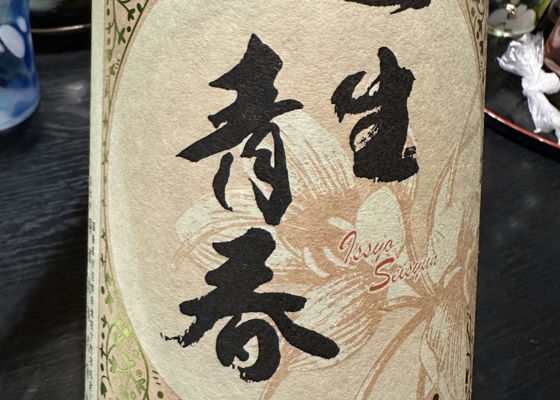 一生
青春
Issyo
Seisyun